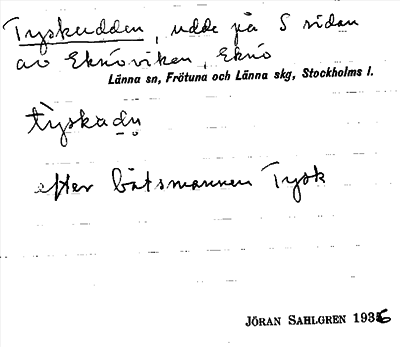 Tyskudden, udde på S sidan
av Eknöviken, Eknö
Länna sn, Frötuna och Länna skg, Stockholms l.
efter båtsmannen Tysk
JÖRAN SAHLGREN 1936